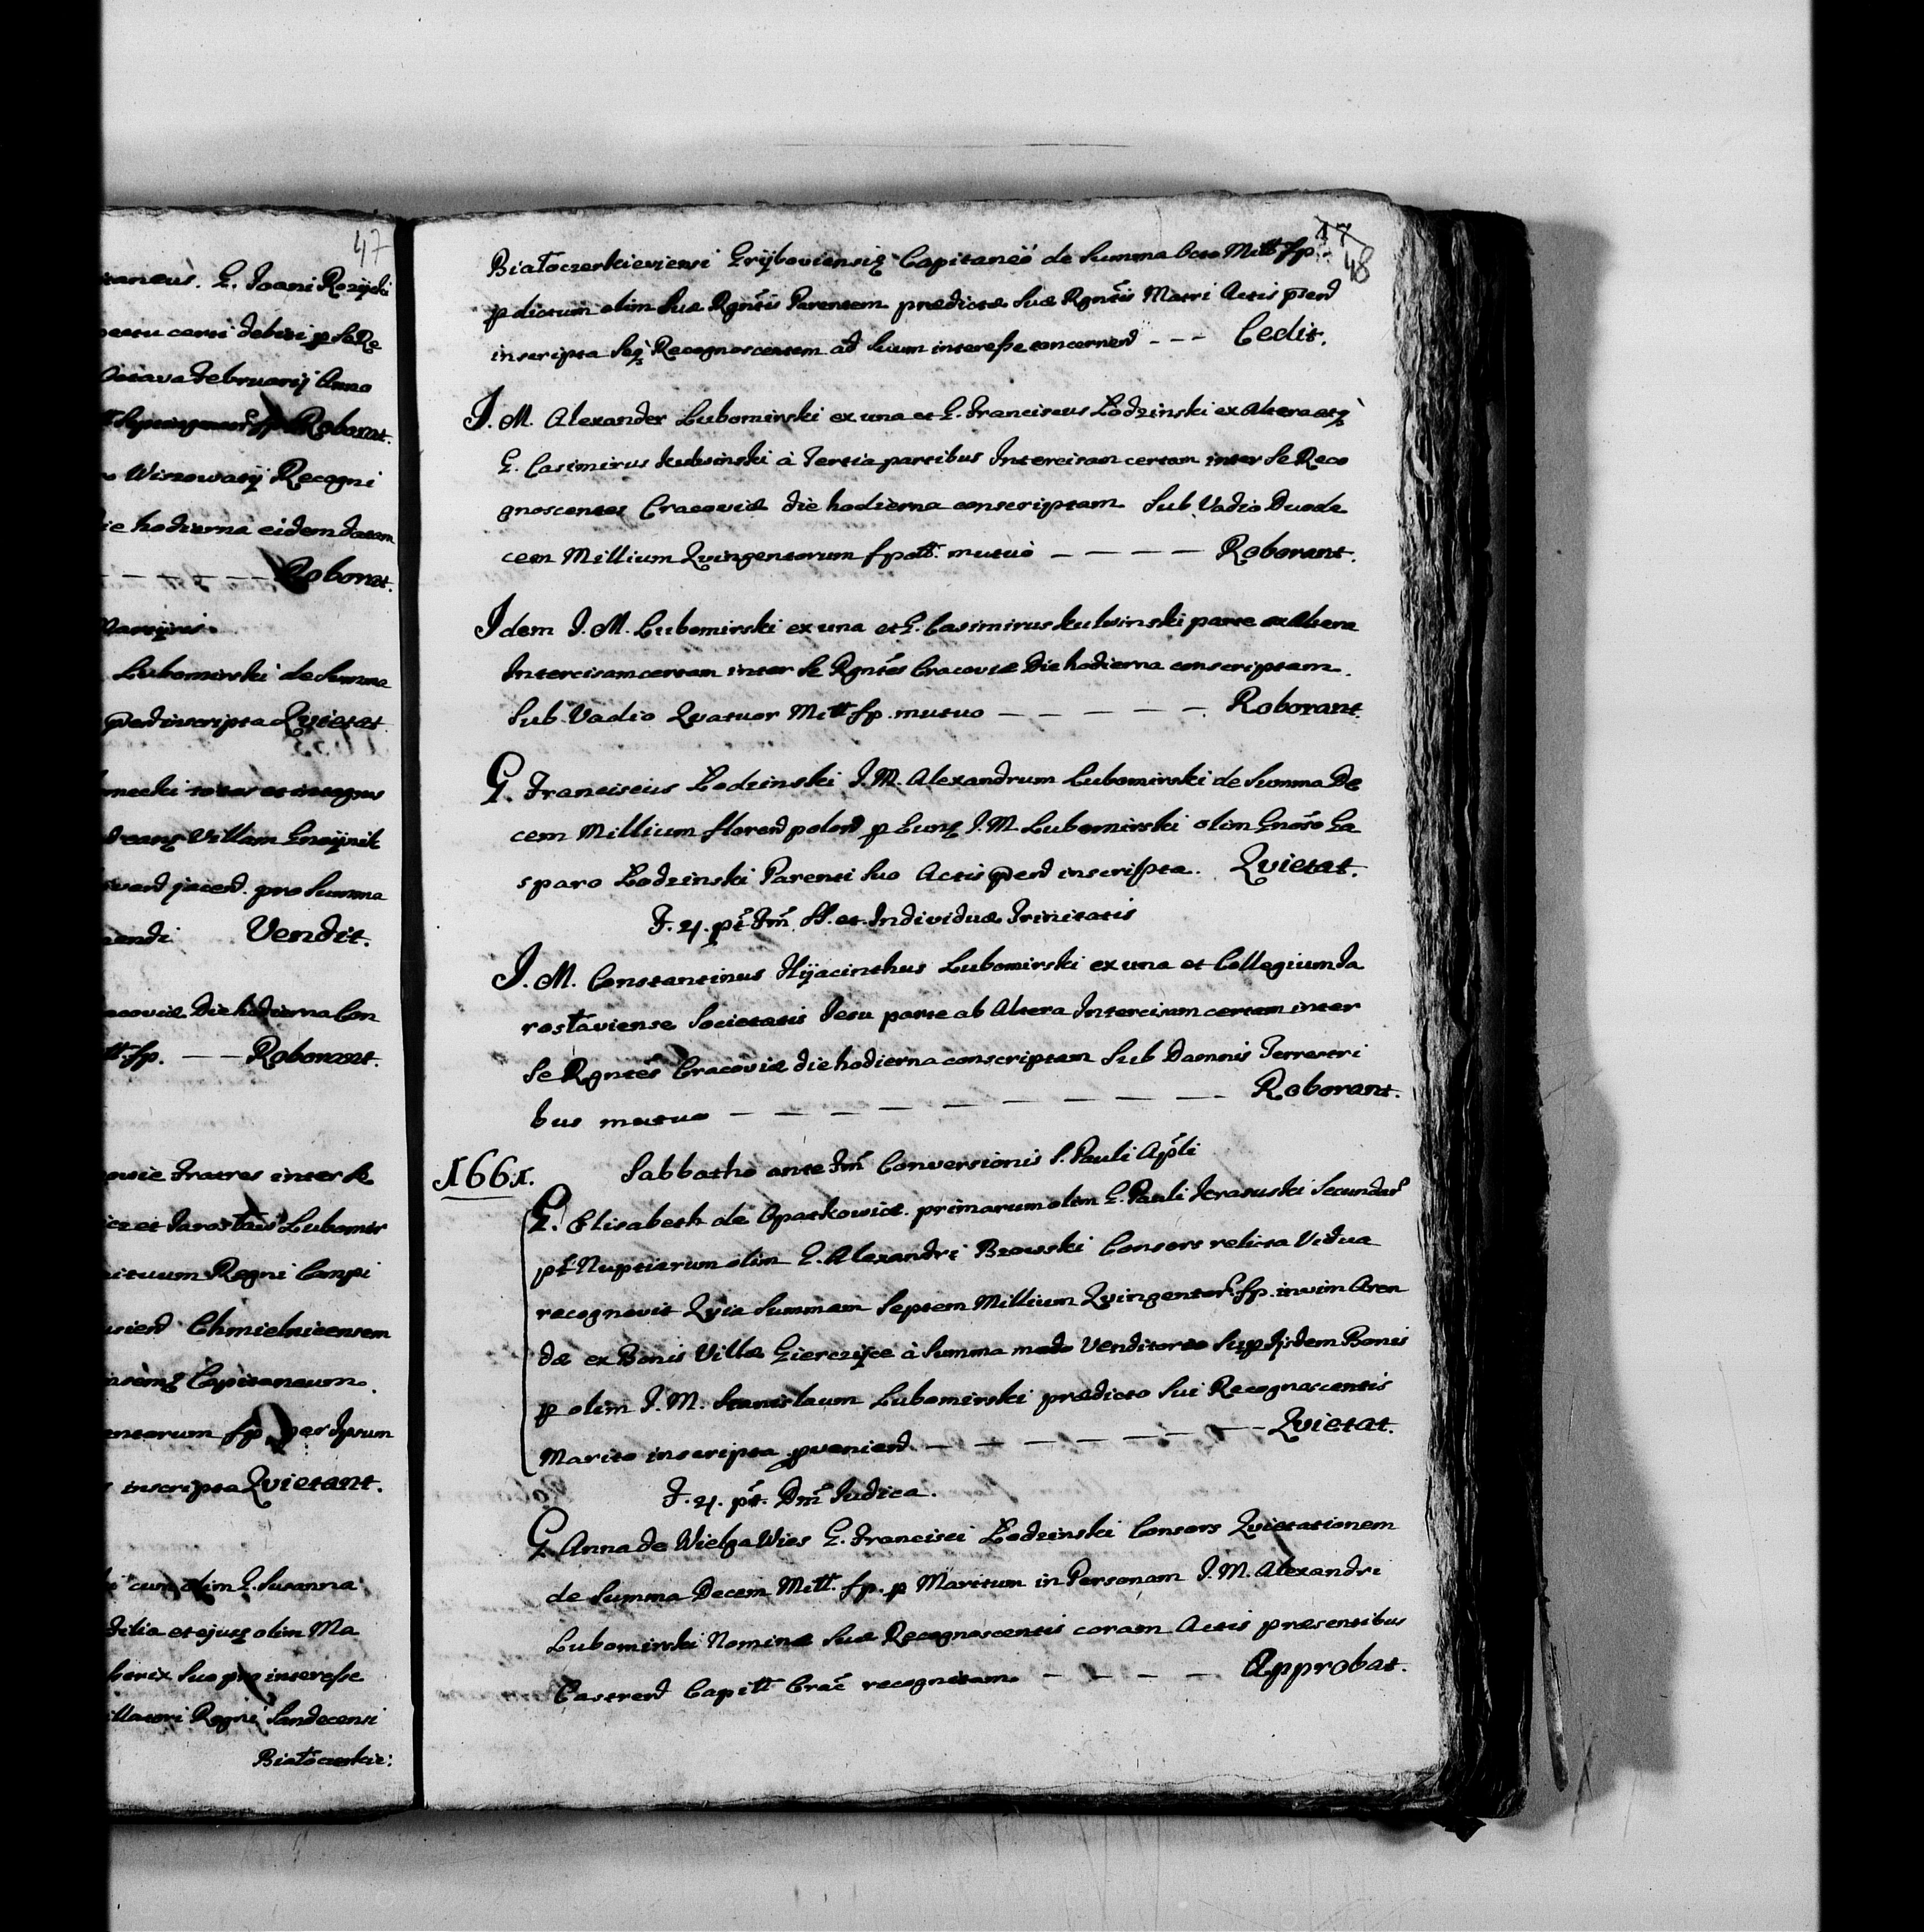 47
taneus. G. Joani Rozijski
certi debiti p se Re
Octava Februarij Anno
Roborat.
Wiszowatij Recogni
die hodierna eidem datam
Roborat.
Martijris.
Lubomirski de Summa
inscripta Qvietat
et integras
Villam Gnoijnik
jacend. pro Summa
Vendit.
die hodierna Con
fp. — — Roborant.
Fratres inter se
et Jarosłaus Lubomir
Regni Campi
Chmielnicensem
Capitaneum.
entorum fp per Ipsum
inscripta Qvietant.
cum olim G. Susanna
Filia et ejusq olim Ma
suo pro interesse
Regni Sandecensi
Białocerkie:
17
48
Białocerkieviensi Grijboviensiq Capitaneo de Summa Octo Mill fp.
p dictum olim Suæ Rgntis Parentem prædictæ Suæ Rgntis Matri Actis pnd
inscripta Seq Recognoscentem ad Suum interesse concernend - - - Cedit.
I. M. Alexander Lubomirski ex una et G. Franciscus Łodzinski ex Altera atq
G. Casimirus Kulwinski à Tertia partibus Intercisam certam inter Se Reco
gnoscentes Cracoviæ die hodierna conscriptam Sub Vadio Duode
cem Millium Qvingentorum fpoll. mutuo — — — — Roborant.
Idem I. M. Lubomirski ex una et G. Casimirus Kulwinski parte ex Altera
Intercisam certam inter Se Rgntes Cracoviæ Die hodierna conscriptam.
Sub Vadio Qvatuor Mill fp. mutuo — — — — — Roborant.
G. Franciscus Łodzinski I. M. Alexandrum Lubomirski de Summa De
cem Millium florend polond p Eunq I. M. Lubomirski olim Gnoso Ga
sparo Łodzinski Parenti Suo Actis pnd inscripta. Qvietat.
F. 4. pt Fm SS. et Individuæ Trinitatis
I. M. Constantinus Hijacinthus Lubomirski ex una et Collegium Ja
rosłaviense Societatis Jesu parte ab Altera Intercisam certam inter
Se Rgntes Cracoviæ die hodierna conscriptam Sub Damnis Terrestri
bus mutuo — — — — — — — — — — Roborant.
1661. Sabbatho ante Fm Conversionis S. Pauli Apli
G. Elisabeth de Opatkowice primarum olim G. Pauli Jerasuski Secundar
pt Nuptiarum olim G. Alexandri Browski Consors relicta Vidua
recognovit Qvia Summam Septem Millium Qvingentor. fp. in vim Aren
dæ ex Bonis Villæ Gierczijce à Summa modo Venditorio Sup Ijsdem Bonis
p olim I. M. Stanislaum Lubomirski prædicto Sui Recognoscentis
Marito inscripta pveniend — — — — — — — Qvietat.
F. 4. pt. Dm Judica.
G Anna de Wielga Wies G. Francisci Łodzinski Consors Qvietationem
de Summa Decem Mill. fp. p Maritum in Personam I. M. Alexandri
Lubomirski Nominæ Suæ Recognoscentis coram Actis præsentibus
Castrend Capitl Crac recognitam — — — — Approbat.